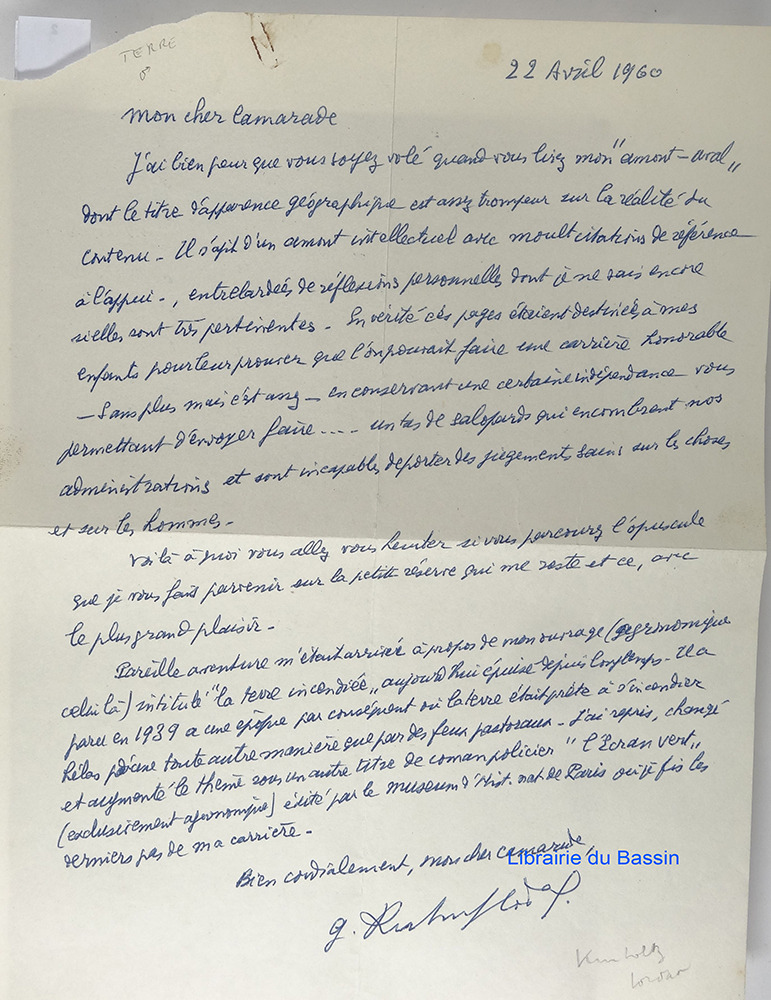 TERRE
22 Avril 1960
Mon cher Camarade
J'ai bien peur que vous soyez volé quand vous lirez mon "amont-aval"
dont le titre d'apparence géographique est assez trompeur sur la réalité du
contenu - Il s'agit d'un amont intellectuel avec moult citations de référence
à l'appui -, entrelardées de réflexions personnelles dont je ne sais encore
si elles sont très pertinentes - En vérité ces pages étaient destinées à mes
enfants pour leur prouver que l'on pouvait faire une carrière honorable
- sans plus mais c'est assez - en conservant une certaine indépendance vous
permettant d'envoyer faire .... un tas de salopards qui encombrent nos
administrations et sont incapables de porter des jugements sains sur les choses
et sur les hommes -
Voilà à quoi vous allez vous heurter si vous parcourez l'opuscule
que je vous fais parvenir sur la petite réserve qui me reste et ce, avec
le plus grand plaisir -
Pareille aventure m'était arrivée à propos de mon ouvrage (agronomique
celui là) intitulé "la terre incendiée" aujourd'hui épuisé depuis longtemps - Il a
paru en 1939 a une époque par conséquent où la terre était prête à s'incendier
hélas d'une toute autre manière que par des feux pastoraux - J'ai repris, changé
et augmenté le thème sous un autre titre de roman policier "l'Écran vert"
(exclusivement agronomique) édité par le Museum d'Hist. nat de Paris où je fis les
derniers pas de ma carrière -
Bien cordialement, mon cher camarade,
Librairie du Bassin
g.